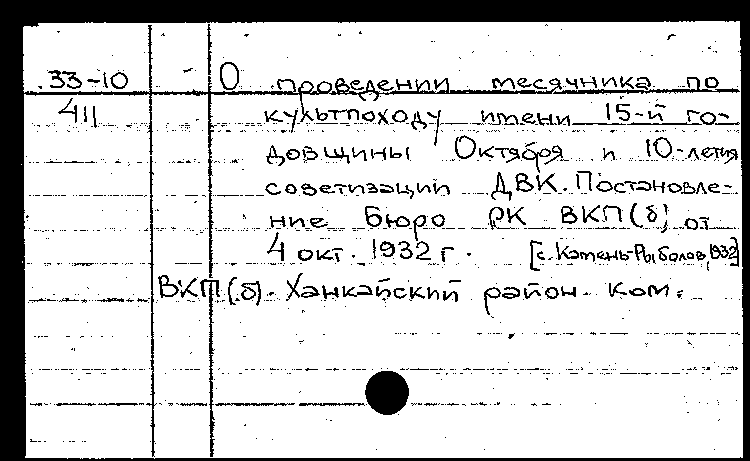 33-10 О проведении месячника по
411 культпоходу имени 15-й го-
довщины Октября и 10-летия
советизации ДВК. Постановле-
ние бюро РК ВКП(б) от
4 окт. 1932 г. [с. Камень-Рыболов, 1932]
ВКП(б). Ханкайский район. ком.